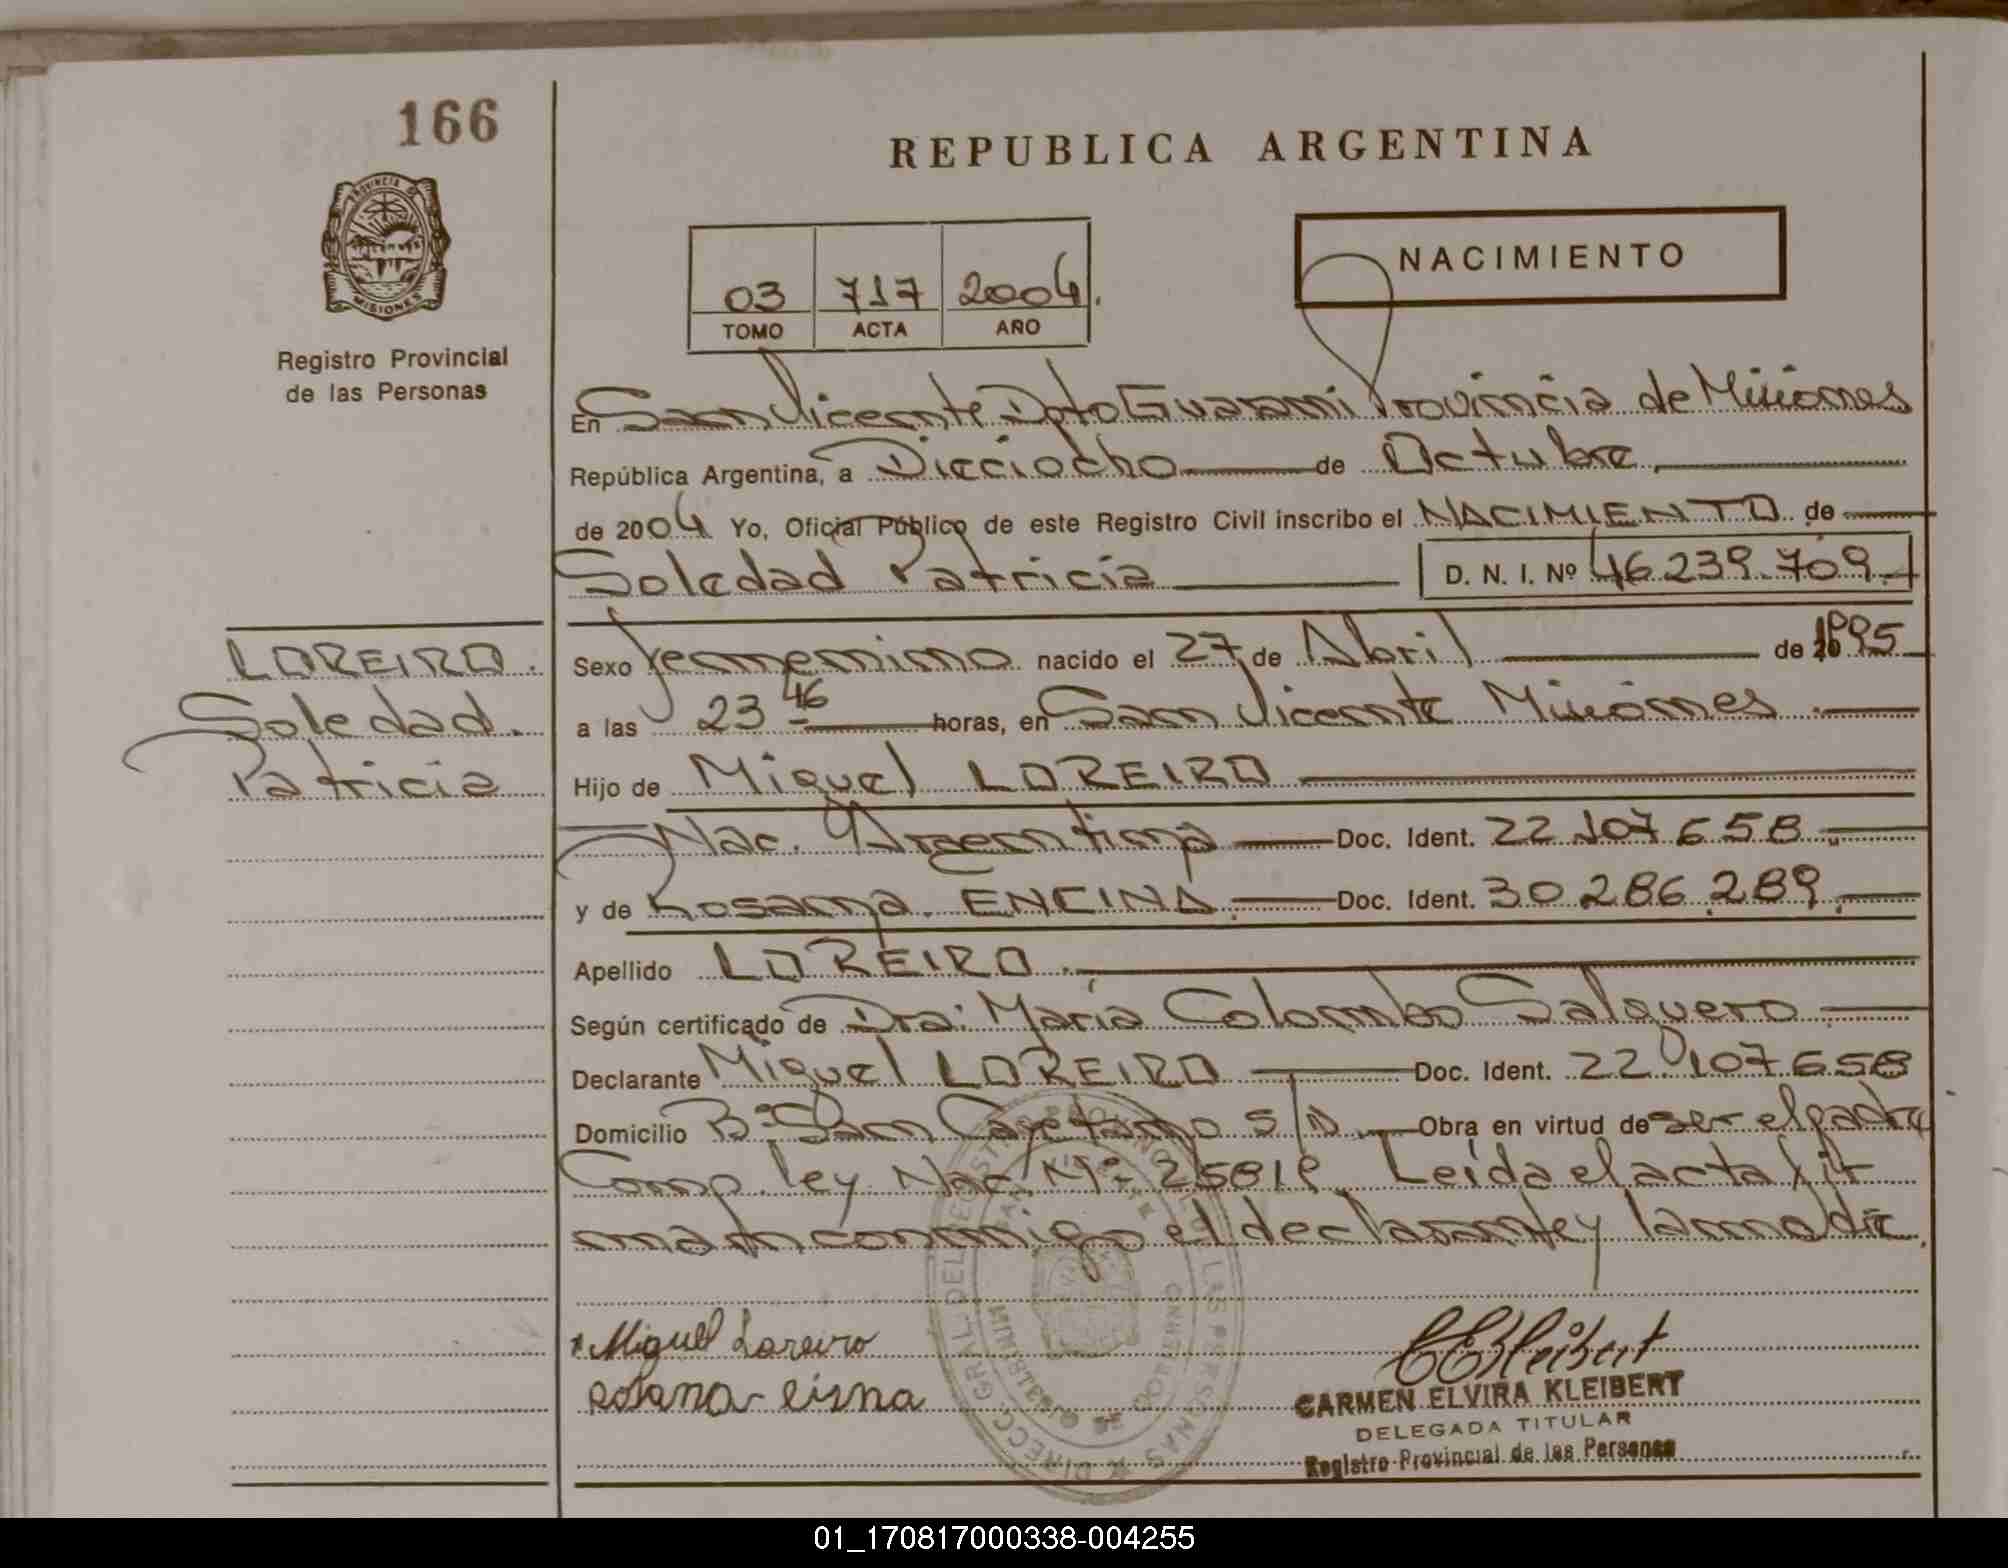 166
REPUBLICA ARGENTINA
PROVINCIA DE
MISIONES
NACIMIENTO
03 717 2004.
TOMO ACTA AÑO
Registro Provincial
de las Personas
En San Vicente Dpto Guarani Provincia de Misiones
República Argentina, a Dieciocho de Octubre
de 2004 Yo, Oficial Público de este Registro Civil inscribo el NACIMIENTO de
Soledad Patricia D. N. I. Nº 46.239.709.
LOREIRO.
Soledad.
Patricia
Sexo femenino nacido el 27 de Abril de 1995
a las 23 46 horas, en San Vicente Misiones
Hijo de Miguel LOREIRO
Nac. Argentina Doc. Ident. 22.107.658.
y de Rosana ENCINA Doc. Ident. 30.286.289.
Apellido LOREIRO.
Según certificado de Dra: María Colombo Salguero
Declarante Miguel LOREIRO Doc. Ident. 22.107.658
Domicilio Bº San Cayetano S/N Obra en virtud de ser el padre
Comp. ley Nac. Nº 25819. Leída el acta fir
man conmigo el declarante y la madre.
Miguel Loreiro
CARMEN ELVIRA KLEIBERT
DELEGADA TITULAR
Registro Provincial de las Personas
01_170817000338-004255